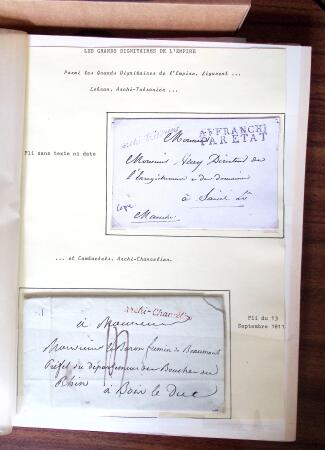 LES GRANDS DIGNITAIRES DE L'EMPIRE
Parmi les Grands Dignitaires de l'Empire, figurent ...
Lebrun, Archi-Trésorier ...
Pli sans texte ni date
AFFRANCHI
PAR ETAT
Monsieur
Monsieur Directeur de
l'Enregistrement & des domaines
à Saint Lo
Manche
... et Cambacérès, Archi-Chancelier.
Pli du 13
Septembre 1811
Archi-Chancel
à Monsieur
Monsieur le Baron fremin de Beaumont
Préfet du département des Bouches du
Rhin
à Bois le Duc